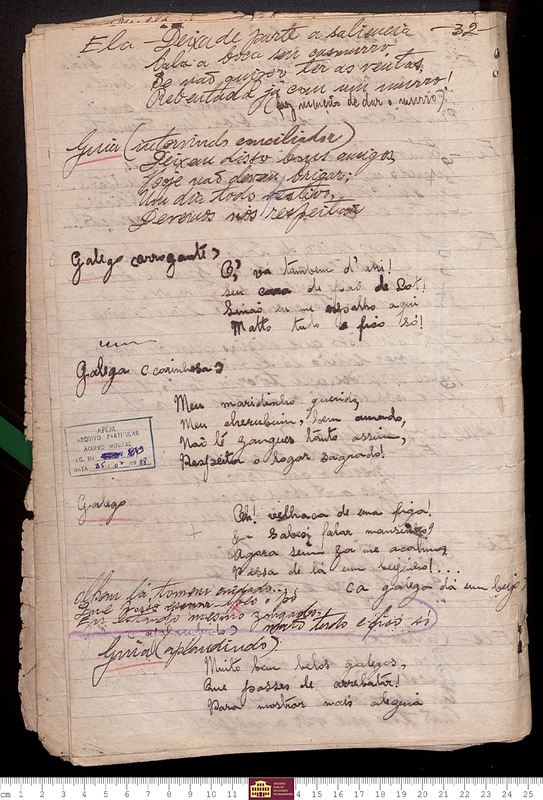 -32-
Ela - Deixa de parte a saliencia
Cala a boca seu casmurro
Se não quizer ter as ventas
Rebentada já com um murro!
(faz menção de dar o murro)
Guia (intervindo conciliador)
Deixem disso bons amigos
Hoje não devem brigar;
Num dia todo festivo,
Devemos nós respeitar
Galego (arrogante)
O', vá tambem d'ahi!
Seu cara de pau de Lot!
Sinão eu me espalho aqui
Matto tudo e fico só!
Galega (carinhosa)
Meu maridinho querido,
Meu cherubim, bem amado,
Não té zangues tanto assim,
Respeita o logar sagrado!
APEM
ARQUIVO PARTICULAR
ACERVO MUSICAL
IG. No
DATA 25
Galego
Oh! velhaca de uma figa!
Ja sabes falar mansinho?
Agora sim ja me acalmo,
Passa de lá um beijinho!...
(a galega dá um beijo)
Olhem lá, tomem cuidado...
Que
Eu estando mesmo zangado
mato tudo e fico só
Guia (aplaudindo)
Muito bem belos galegos,
Que passes de arrebatar!
Para mostrar mais alegria
cm 1 2 3 4 5 6 7 8 9 10 11 12 13 14 15 16 17 18 19 20 21 22 23 24 25